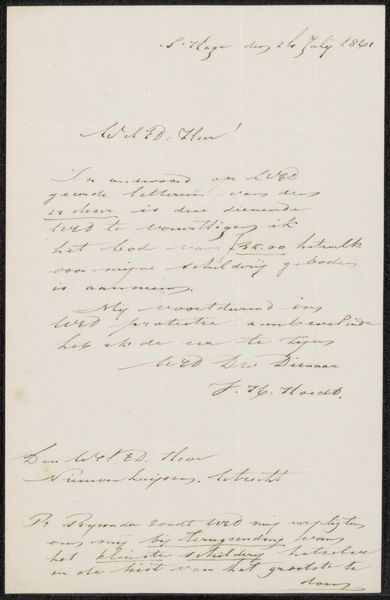 's Hage den 24 July 1841
Wel Ed. Heer!
In andwoord op WED
geeerde letteren van den
22 dezer is deze dienende
WED te verwittigen ik
het bod van f35.00 hetwelk
voor mijne schilderij geboden
is aanneem.
My voortdurend in
WED protectie aanbevelende
heb ik de eer te zijn
WED Dw Dienaar
J. H. Hoedt.
Den Wel ED. Heer
Nieuwenhuijsen. Utrecht
Ps Byzonder zoudt WED mij verpligten
om mij bij terugzending van
het kleinste schilderij hetzelve
in de kist van het grootste te
doen